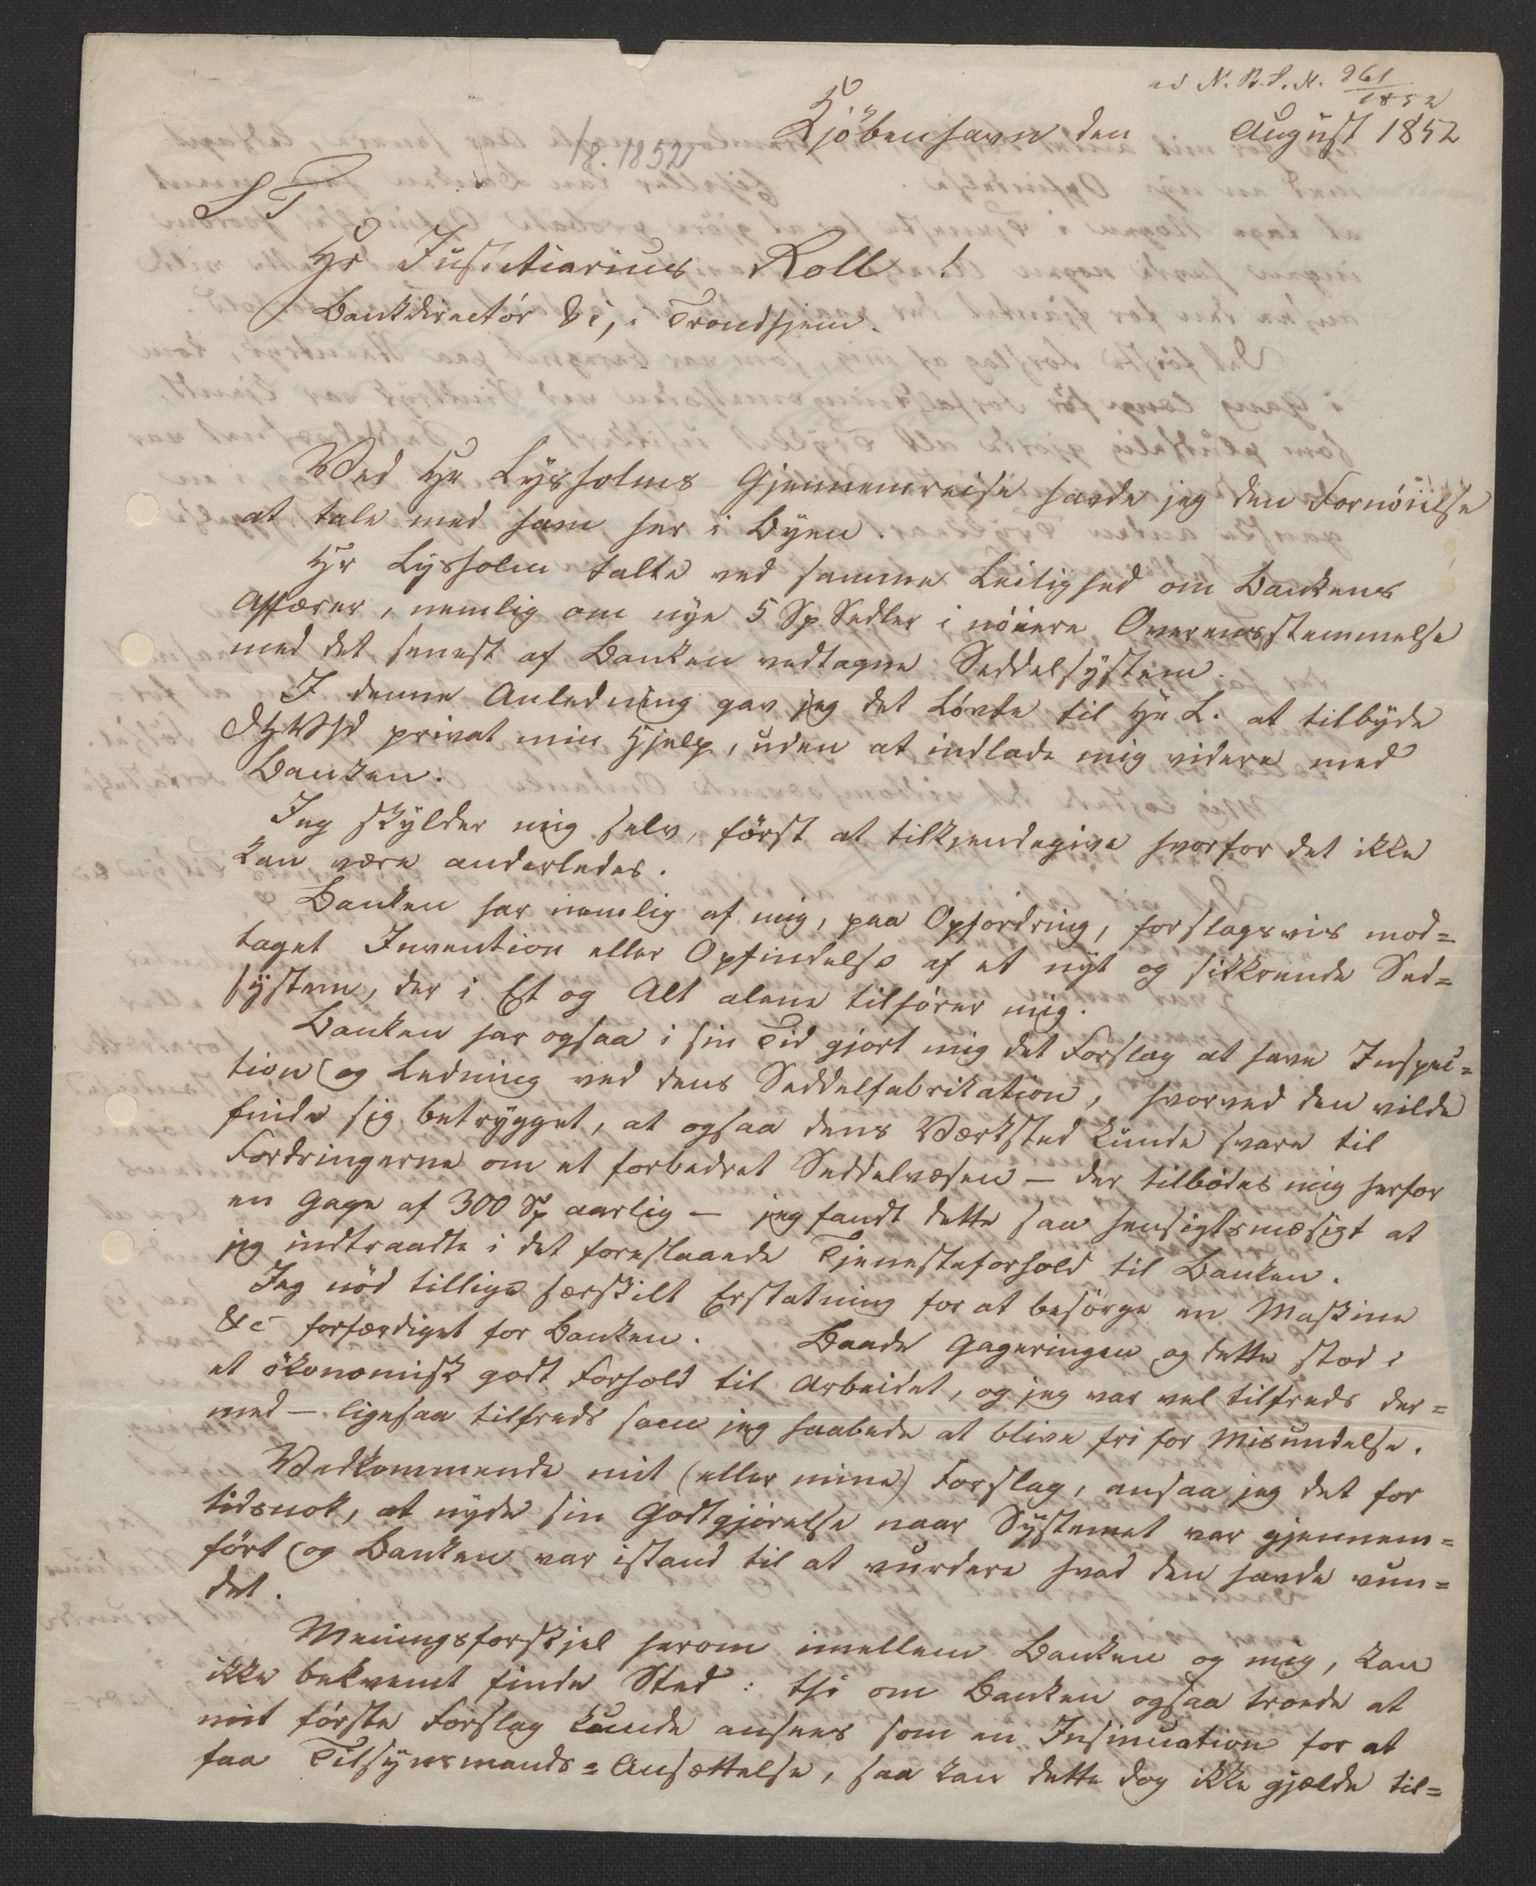 ad N. B. S. N. 261/1852
Kjöbenhavn den August 1852
/8. 1852
S T
Hr Justitiarius Roll!
Bankdirectör &c, i Trondhjem.
Ved Hr Lysholms Gjennemreise havde jeg den Fornöielse
at tale med ham her i Byen.
Hr Lysholm talte ved samme Leilighed om Bankens
Affærer, nemlig om nye 5 Sp Sedler i nöiere Overensstemmelse
med det senest af Banken vedtagne Seddelsystem.
I denne Anledning gav jeg det Lövte til Hr L. at tilbyde
privat min Hjelp, uden at indlade mig videre med
Banken.
Jeg skylder mig selv, först at tilkjendegive hvorfor det ikke
kan være anderledes.
Banken har nemlig af mig, paa Opfordring, forslagsvis mod=
taget Invention eller Opfindelse af et nyt og sikkrende Sed=
system, der i Et og Alt alene tilhörer mig.
Banken har ogsaa i sin Tid gjort mig det Forslag at have Inspec=
tion og Ledning ved dens Seddelfabrikation, hvorved den vilde
finde sig betrygget, at ogsaa dens Værksted kunde svare til
Fordringerne om et forbedret Seddelvæsen — der tilbödes mig herfor
en Gage af 300 Sp aarlig — jeg fandt dette saa hensigtsmæsigt at
jeg indtraadte i det foreslaaede Tjenesteforhold til Banken.
Jeg nöd tillige særskilt Erstatning for at besörge en Maskine
&c forfærdiget for Banken. Baade Gageringen og dette stod i
et ökonomisk godt Forhold til Arbeidet, og jeg var vel tilfreds der=
med — ligesaa tilfreds som jeg haabede at blive fri for Misundelse.
Vedkommende mit (eller mine) Forslag, ansaa jeg det for
tidsnok, at nyde sin Godtgjörelse naar Systemet var gjennem=
fört og Banken var istand til at vurdere hvad den havde vun=
det.
Meningsforskjel herom imellem Banken og mig, kan
ikke bekvemt finde Sted: thi om Banken ogsaa troede at
mit förste Forslag kunde ansees som en Insinuation for at
faa Tilsynsmands=Ansættelse, saa kan dette dog ikke gjælde til=